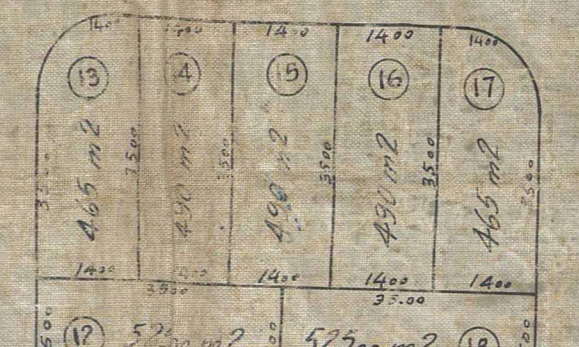 1400 1400 1400 1400 1400
13 14 15 16 17
3500 465 m2 3500 490 m2 3500 490 m2 3500 490 m2 3500 465 m2 3500
1400 1400 1400 1400 1400
3500 35.00
12 525 m2 525 m2 18